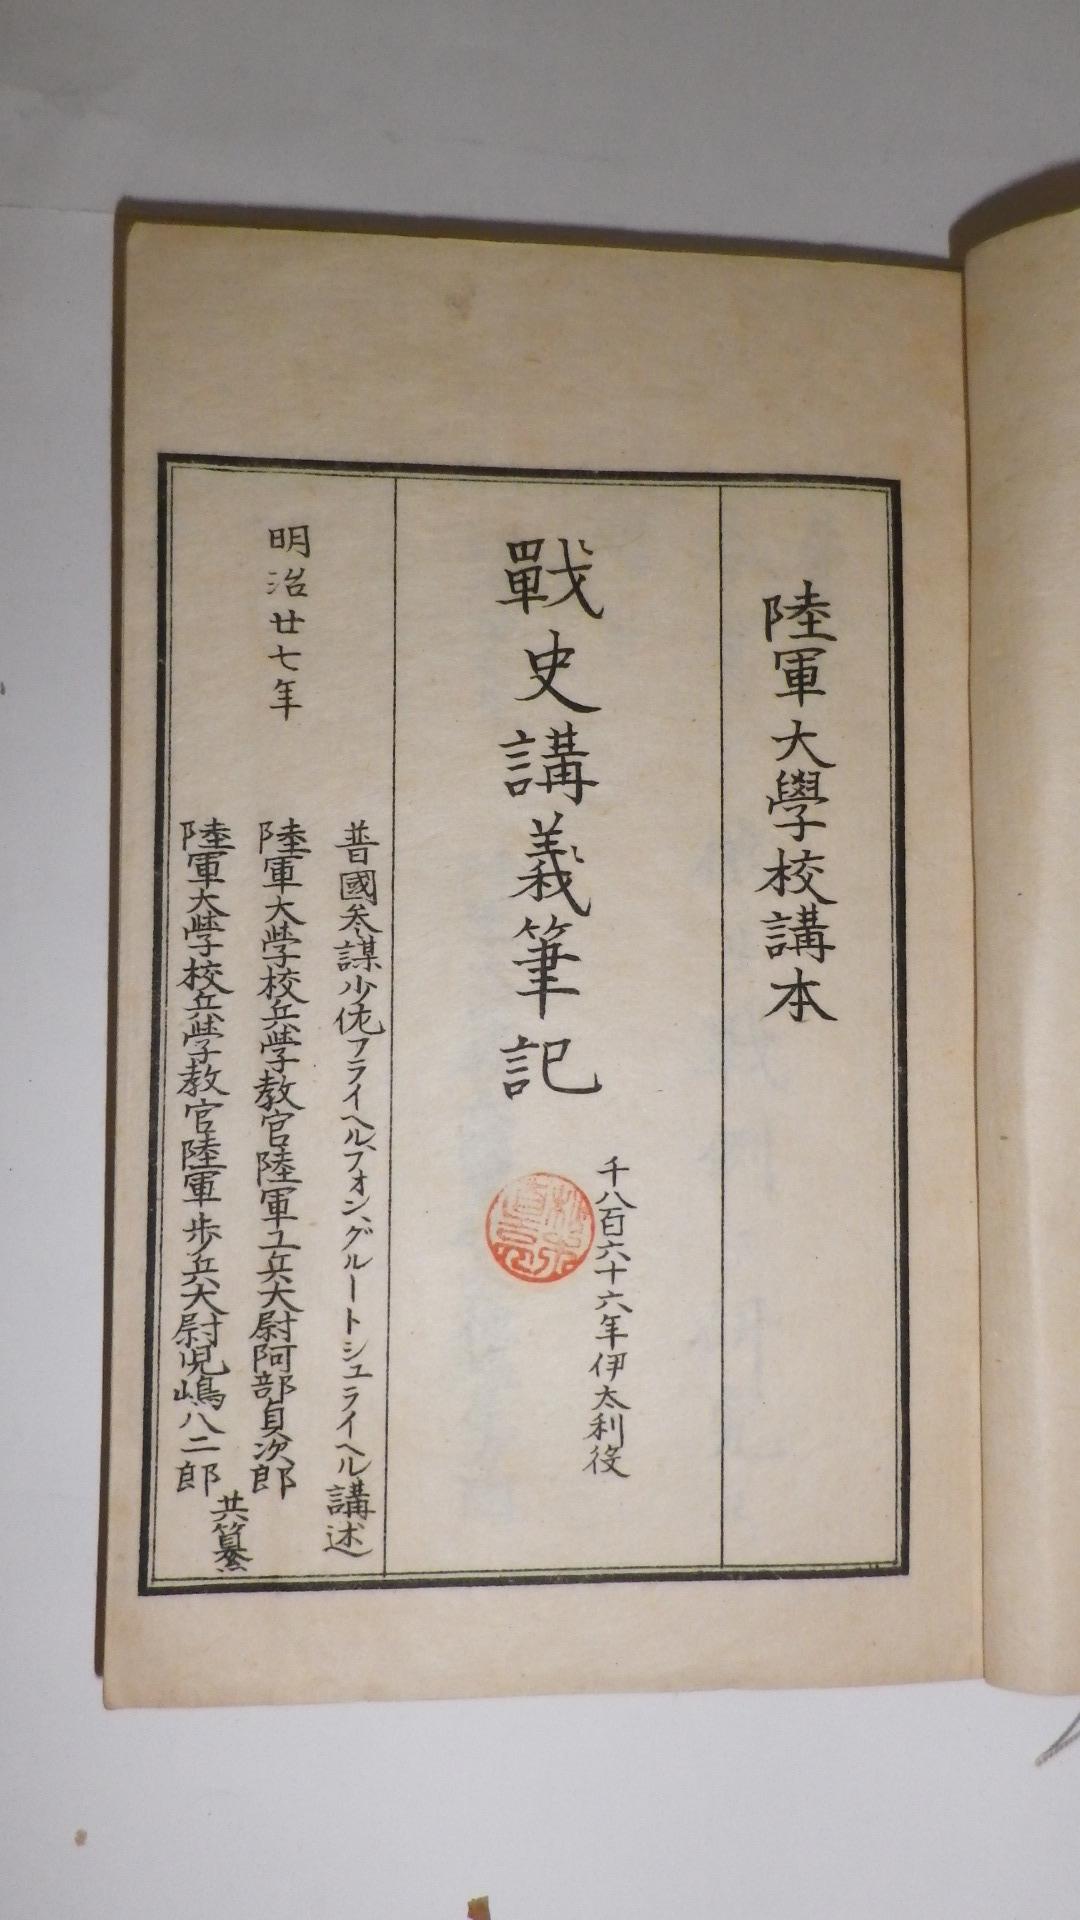 陸軍大學校講本
戰史講義筆記
千八百六十六年伊太利役
明治廿七年
普國参謀少佐フライヘル、フォン、グルートシュライヘル講述
陸軍大學校兵學教官陸軍工兵大尉阿部貞次郎
陸軍大學校兵學教官陸軍歩兵大尉児嶋八二郎
共纂